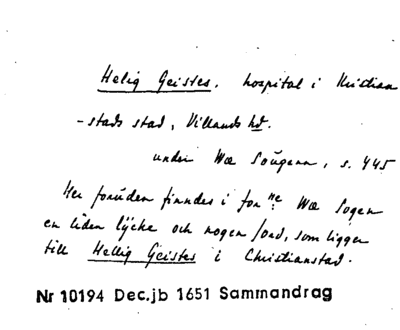 Helig Geistes, hospital i Kristian
-stads stad, Villands hd.
under Wæ Soŭgenn, s. 445
Her foruden finndes i for ne Wæ Sogen
en liden lÿcke och nogen Jord, som ligger
till Hellig Geistes i Christianstad.
Nr 10194 Dec.jb 1651 Sammandrag